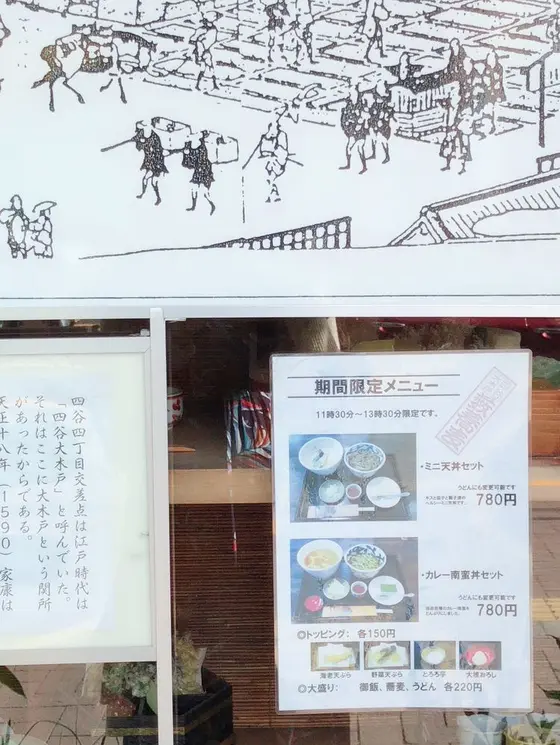 期間限定メニュー
11時30分～13時30分限定です。
・ミニ天丼セット
うどんにも変更可能です
780円
・カレー南蛮丼セット
うどんにも変更可能です
780円
◎トッピング: 各150円
海老天ぷら
野菜天ぷら
とろろ芋
大根おろし
◎大盛り: 御飯、蕎麦、うどん 各220円
四谷四丁目交差点は江戸時代は
「四谷大木戸」と呼んでいた。
それはここに大木戸という関所
があったからである。
天正十八年(1590)家康は